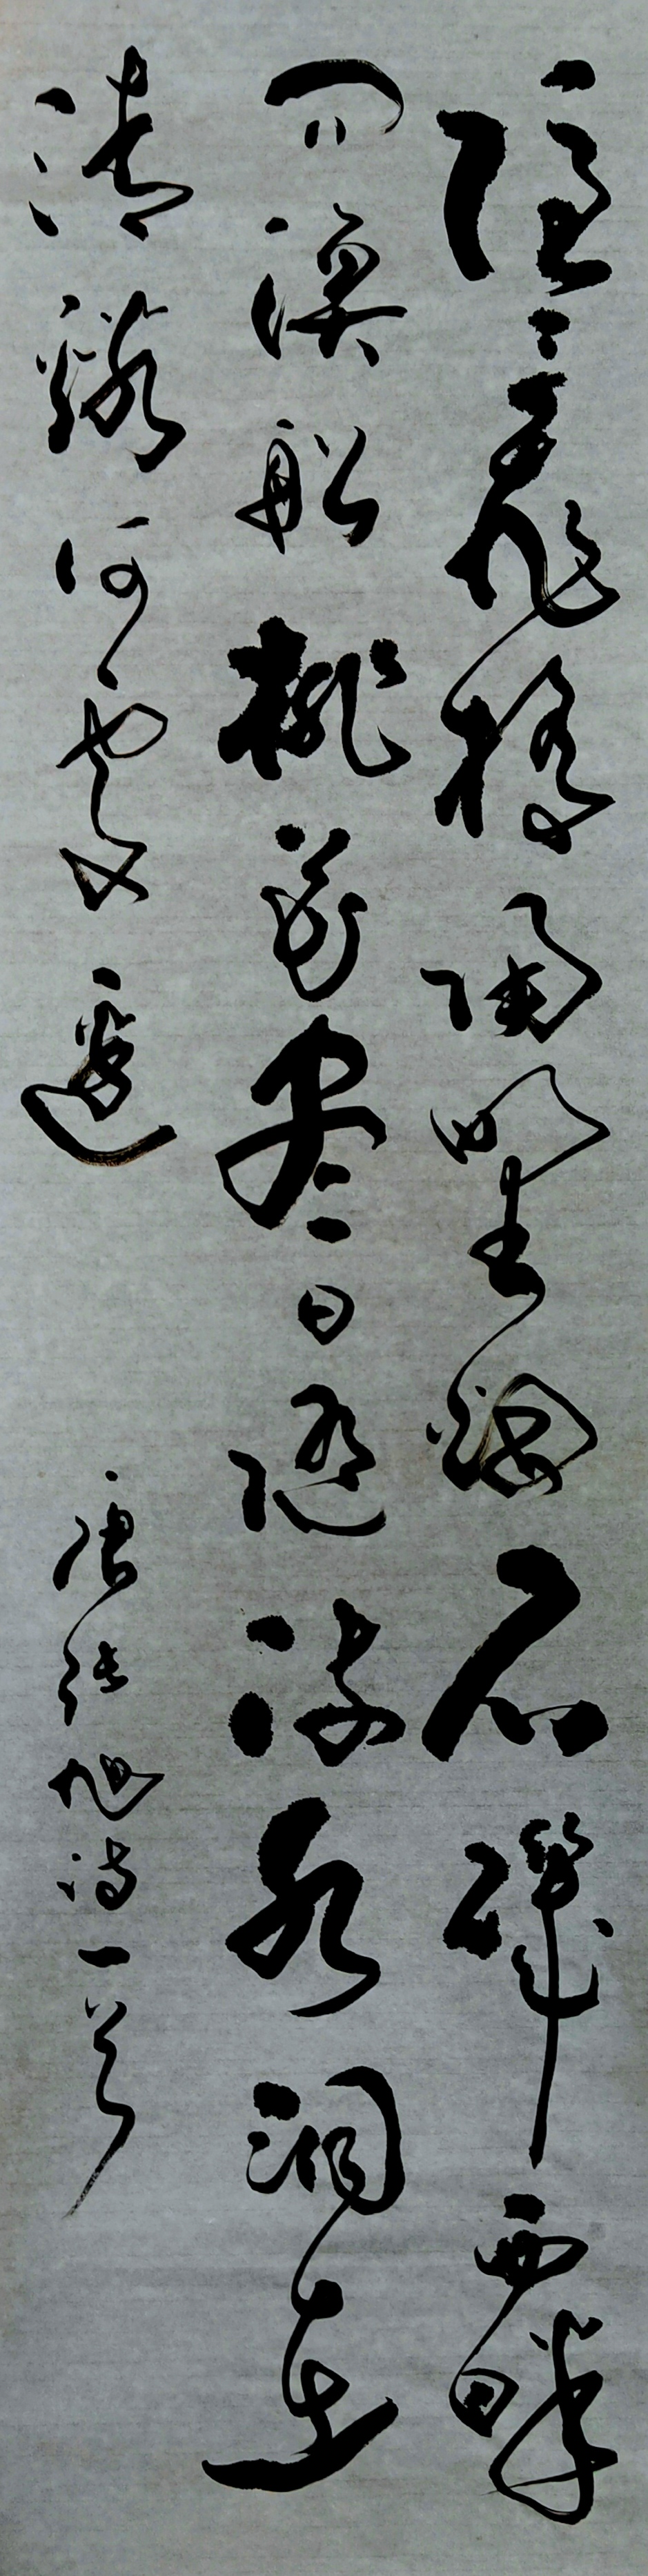 隐隐飞桥隔野烟石矶西畔
问渔船桃花尽日随流水洞在
清谿何处边 唐张旭诗一首